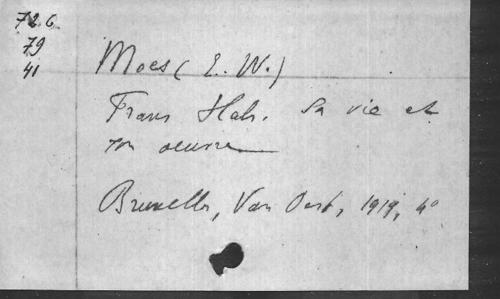 726
79
41
Moes (E. W.)
Frans Hals. Sa vie et
son oeuvre
Bruxelles, Van Oest, 1919, 4°